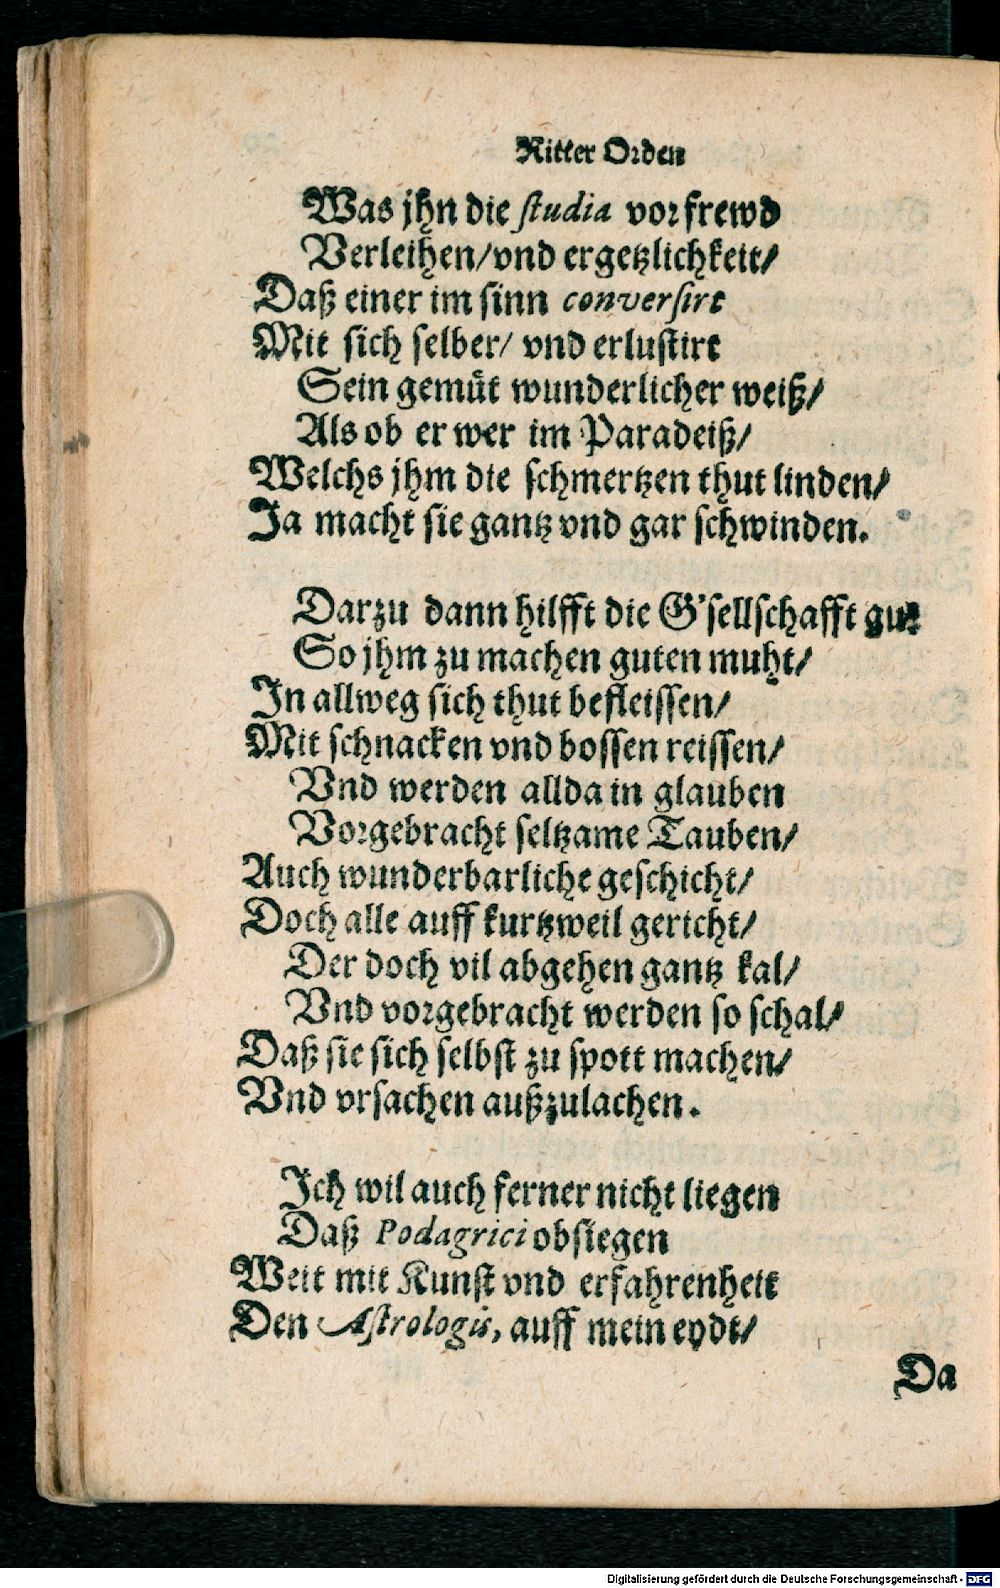 Ritter Orden
Was jhn die studia vor frewd
Verleihen/vnd ergetzlichkeit/
Daß einer im sinn conversirt
Mit sich selber/ vnd erlustirt
Sein gemüt wunderlicher weiß/
Als ob er wer im Paradeiß/
Welchs jhm die schmertzen thut linden/
Ja macht sie gantz vnd gar schwinden.
Darzu dann hilfft die G'sellschafft gut
So jhm zu machen guten muht/
In allweg sich thut befleissen/
Mit schnacken vnd bossen reissen/
Vnd werden allda in glauben
Vorgebracht seltzame Tauben/
Auch wunderbarliche geschicht/
Doch alle auff kurtzweil gericht/
Der doch vil abgehen gantz kal/
Vnd vorgebracht werden so schal/
Daß sie sich selbst zu spott machen/
Vnd vrsachen außzulachen.
Ich wil auch ferner nicht liegen
Daß Podagrici obsiegen
Weit mit Kunst vnd erfahrenheit
Den Astrologis, auff mein eydt/
Da
Digitalisierung gefördert durch die Deutsche Forschungsgemeinschaft - DFG